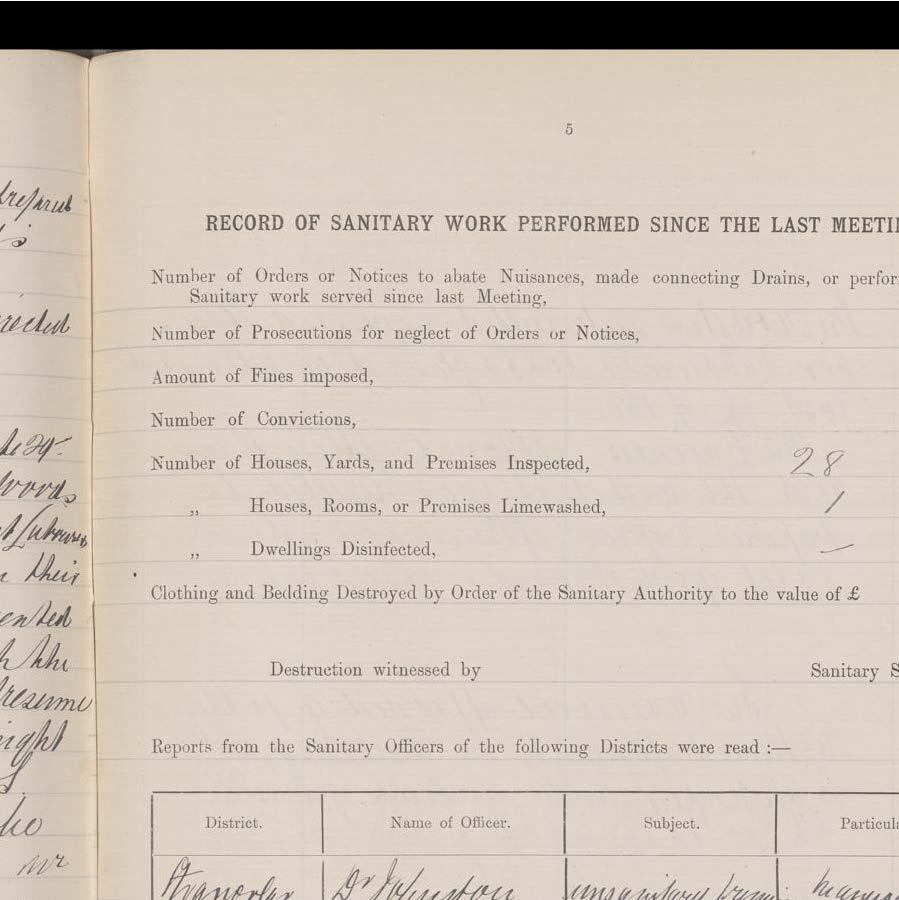 prepared
erected
de 29th
Woods
Labourers
their
ented
the
presume
ight
mr
5
RECORD OF SANITARY WORK PERFORMED SINCE THE LAST MEETI
Number of Orders or Notices to abate Nuisances, made connecting Drains, or perfor
Sanitary work served since last Meeting,
Number of Prosecutions for neglect of Orders or Notices,
Amount of Fines imposed,
Number of Convictions,
Number of Houses, Yards, and Premises Inspected, 28
„ Houses, Rooms, or Premises Limewashed, 1
„ Dwellings Disinfected, —
Clothing and Bedding Destroyed by Order of the Sanitary Authority to the value of £
Destruction witnessed by Sanitary S
Reports from the Sanitary Officers of the following Districts were read :—
District. Name of Officer. Subject. Particula
Stranorlar Dr Johnston unsanitary